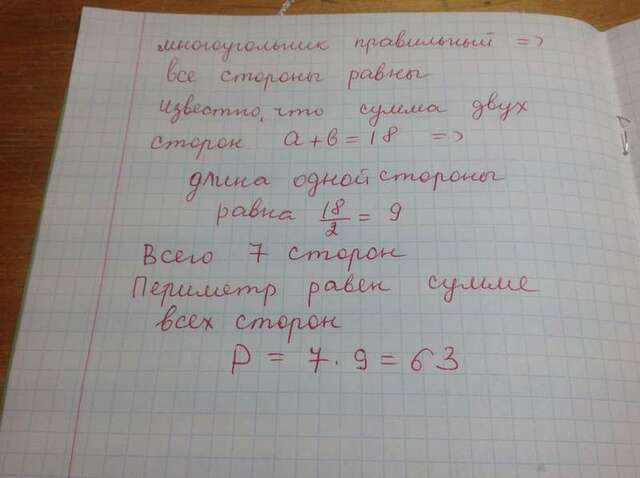 многоугольник правильный =>
все стороны равны
известно, что сумма двух
сторон a + b = 18 =>
длина одной стороны
равна 18/2 = 9
Всего 7 сторон
Периметр равен сумме
всех сторон
P = 7 · 9 = 63